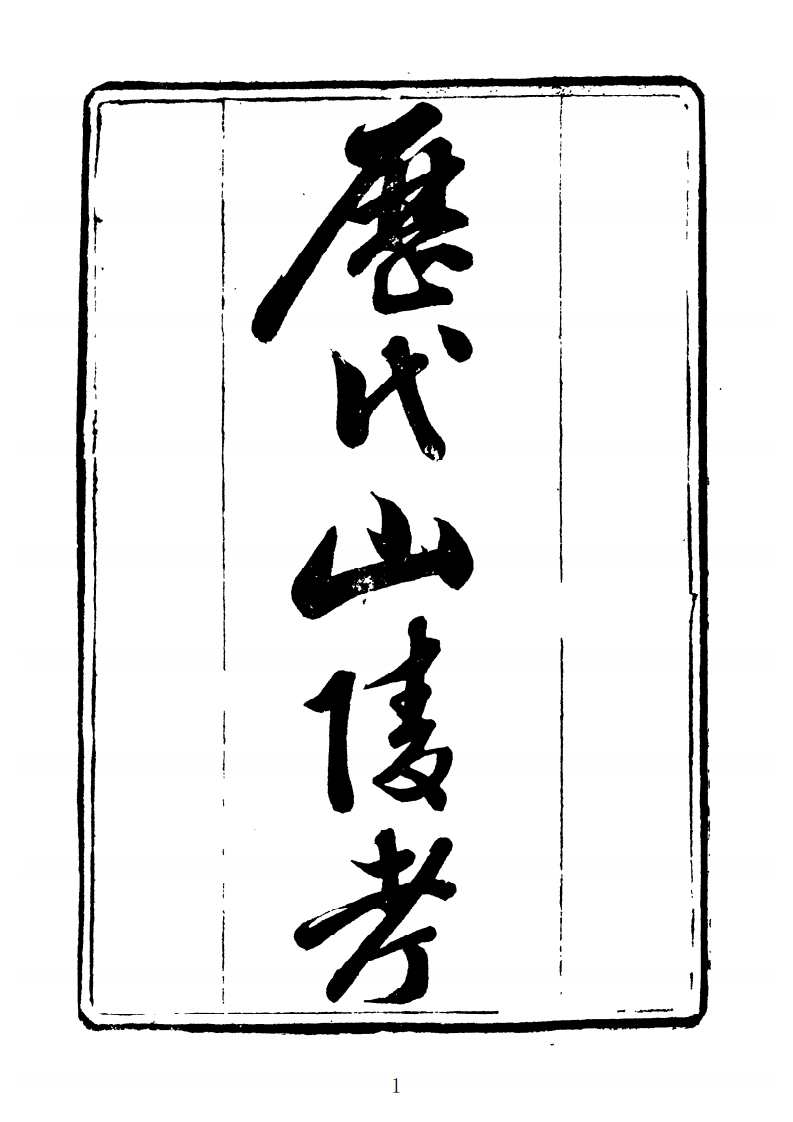 歷代山陵考
1